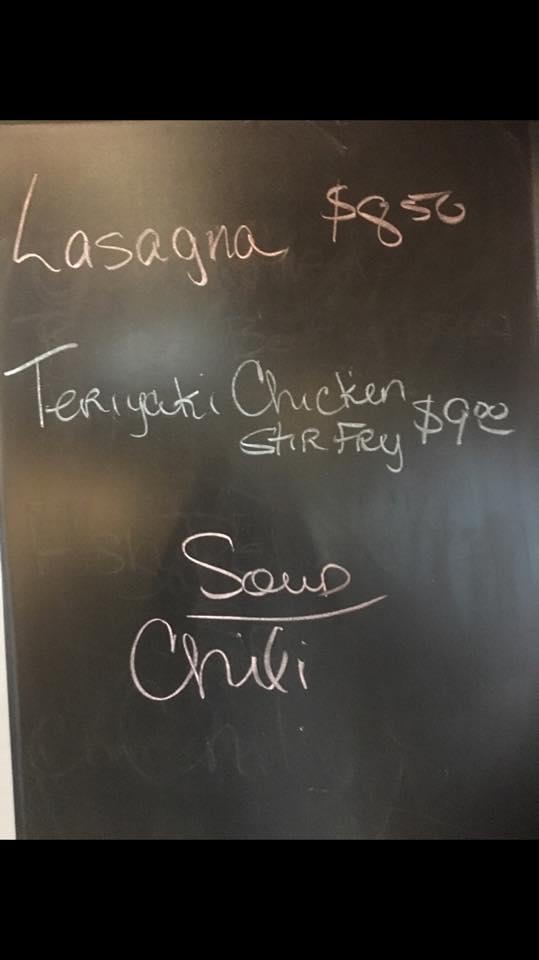 Lasagna $8.50
Teriyaki Chicken
Stir Fry $9.00
Soup
Chili